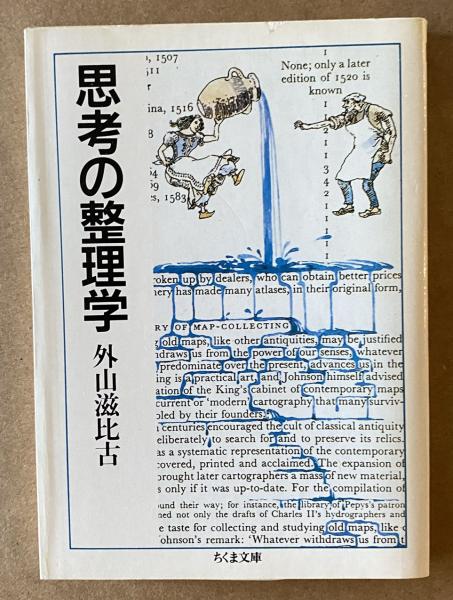 思考の整理学
外山滋比古
, 1507
511
r
ina, 1516
8
564
569
s, 1583
None; only a later
edition of 1520 is
known
1
1
2
1
1
1
3
4
2
1
1
1
1
1
oken up by dealers, who can obtain better prices
ery has made many atlases, in their original form,
RY OF MAP-COLLECTING
g old maps, like other antiquities, may be justified
hdraws us from the power of our senses, whatever
predominate over the present, advances us in the
ing is a practical art, and Johnson himself advised
ation of the King's cabinet of contemporary maps
current or 'modern' cartography that many surviv-
pled by their founders.
h centuries encouraged the cult of classical antiquity
eliberately to search for and to preserve its relics.
as a systematic representation of the contemporary
covered, printed and acclaimed. The expansion of
brought later cartographers a mass of new material,
s only if it was up-to-date. For the compilation of
und their way; for instance, the library of Pepys's patron
ned not only the drafts of Charles II's hydrographers and
e taste for collecting and studying old maps, like
ohnson's remark: 'Whatever withdraws us from t
ちくま文庫